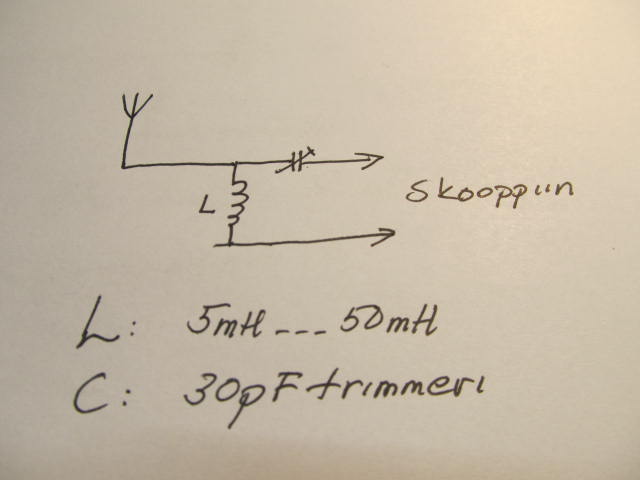 Skooppiin
L
L: 5mH --- 50mH
C: 30pF trimmeri